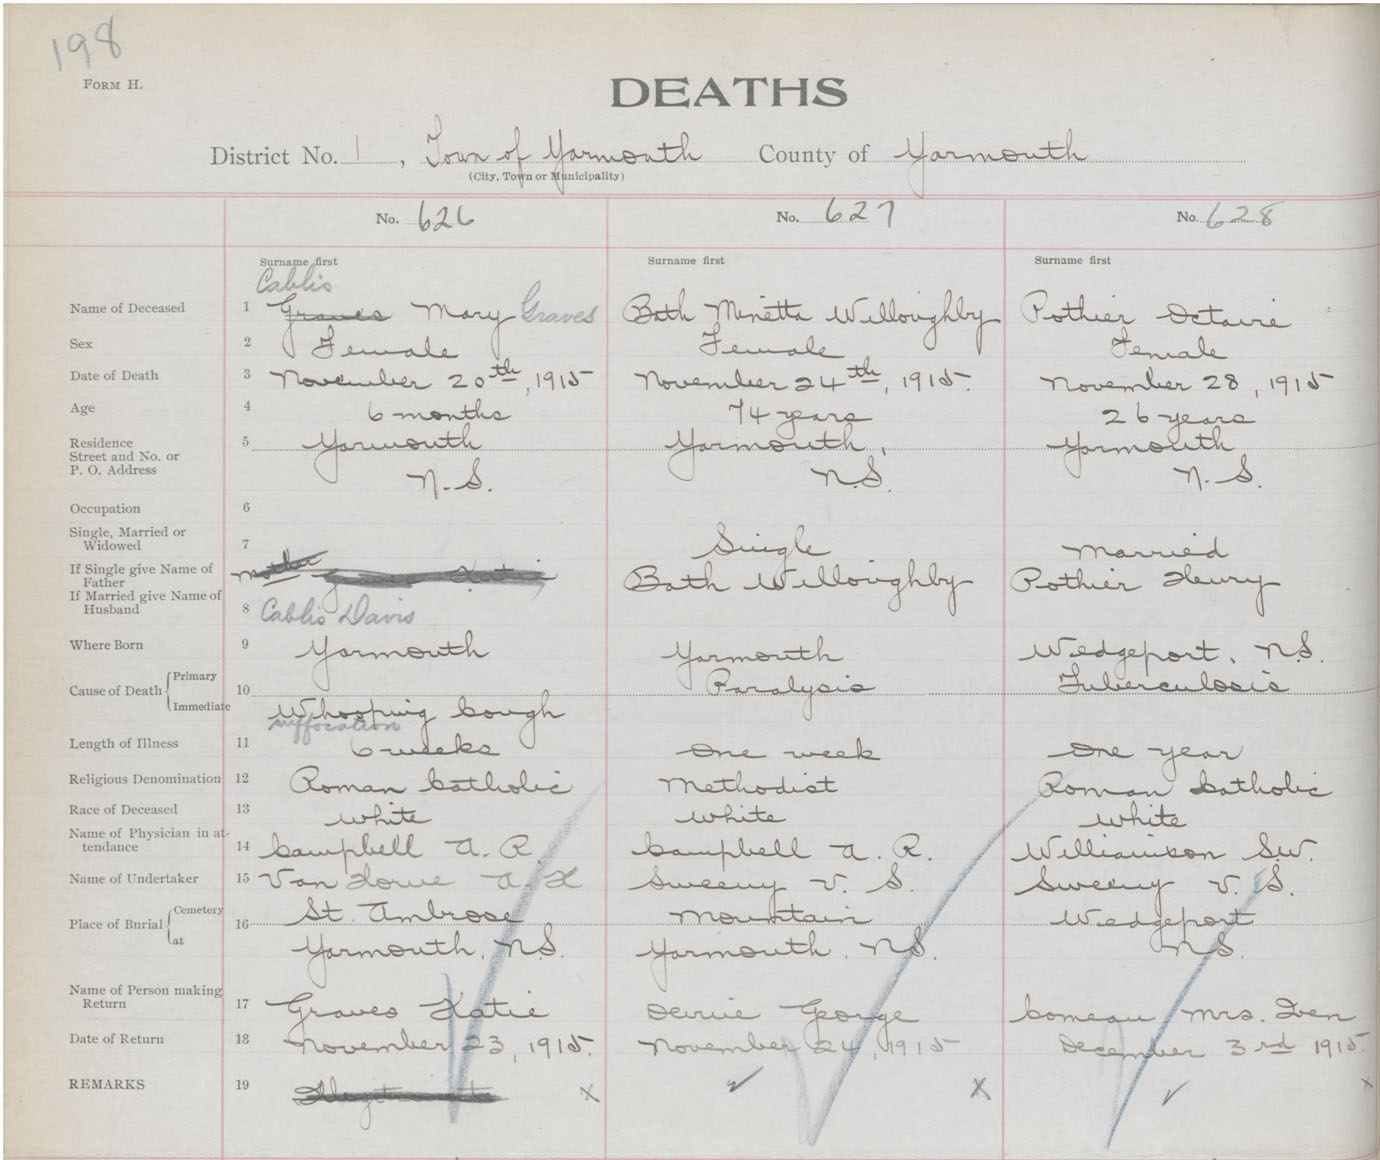 198
FORM H.
DEATHS
District No. 1, Town of Yarmouth County of Yarmouth
(City, Town or Municipality)
No. 626 No. 627 No. 628
Surname first Surname first Surname first
Cablis
Name of Deceased 1 Graves Mary Graves Bath Minetta Willoughby Pothier Octavie
Sex 2 Female Female Female
Date of Death 3 November 20th, 1915 November 24th, 1915. November 28, 1915
Age 4 6 months 74 years 26 years
Residence 5 Yarmouth Yarmouth, Yarmouth
Street and No. or
P. O. Address N.S. N.S. N.S.
Occupation 6
Single, Married or
Widowed 7 Single Married
If Single give Name of
Father mother Katie Bath Willoughby Pothier Henry
If Married give Name of
Husband 8 Cablis Davis
Where Born 9 Yarmouth Yarmouth Wedgeport, N.S.
Cause of Death Primary 10 Paralysis Tuberculosis
Immediate Whooping Cough
suffocation
Length of Illness 11 6 weeks One week One year
Religious Denomination 12 Roman Catholic Methodist Roman Catholic
Race of Deceased 13 White White White
Name of Physician in at-
tendance 14 Campbell A. R. Campbell A. R. Williamson S.W.
Name of Undertaker 15 Van Horne A. H Sweeny V. S. Sweeny V. S.
Place of Burial Cemetery 16 St. Ambrose Mountain Wedgeport
at Yarmouth, N.S. Yarmouth, N.S. N.S.
Name of Person making
Return 17 Graves Katie George Comeau Mrs.
Date of Return 18 November 23, 1915. November 24, 1915 December 3rd 1915.
REMARKS 19 Illegitimate x ✓ X ✓ x